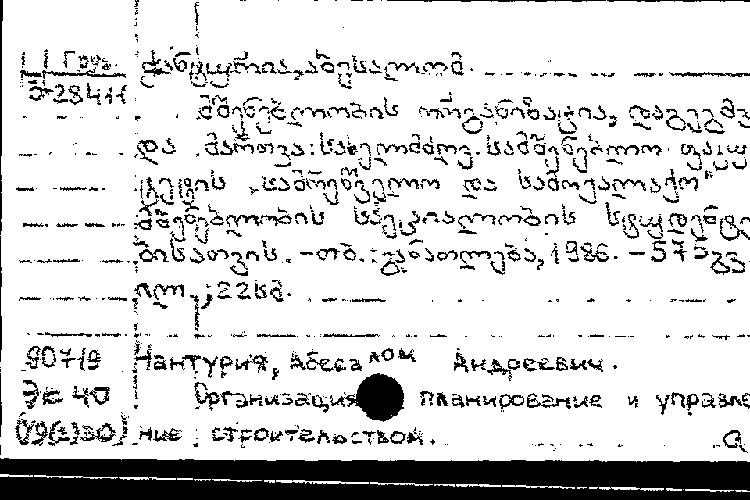 Груз. ჭანტურია, აბესალომ.
3-28411
მშენებლობის ორგანიზაცია, დაგეგმვ
და მართვა: სახელმძღვ. სამშენებლო ფაკულ
ტეტის „სამრეწველო და სამოქალაქო"
მშენებლობის სპეციალობის სტუდენტე
ბისათვის. -თბ.: განათლება, 1986. - 575გვ.
ილ.; 22სმ.
90719 Чантурия, Абесалом Андреевич.
Эк 40 Организация планирование и управле
ние строительством.